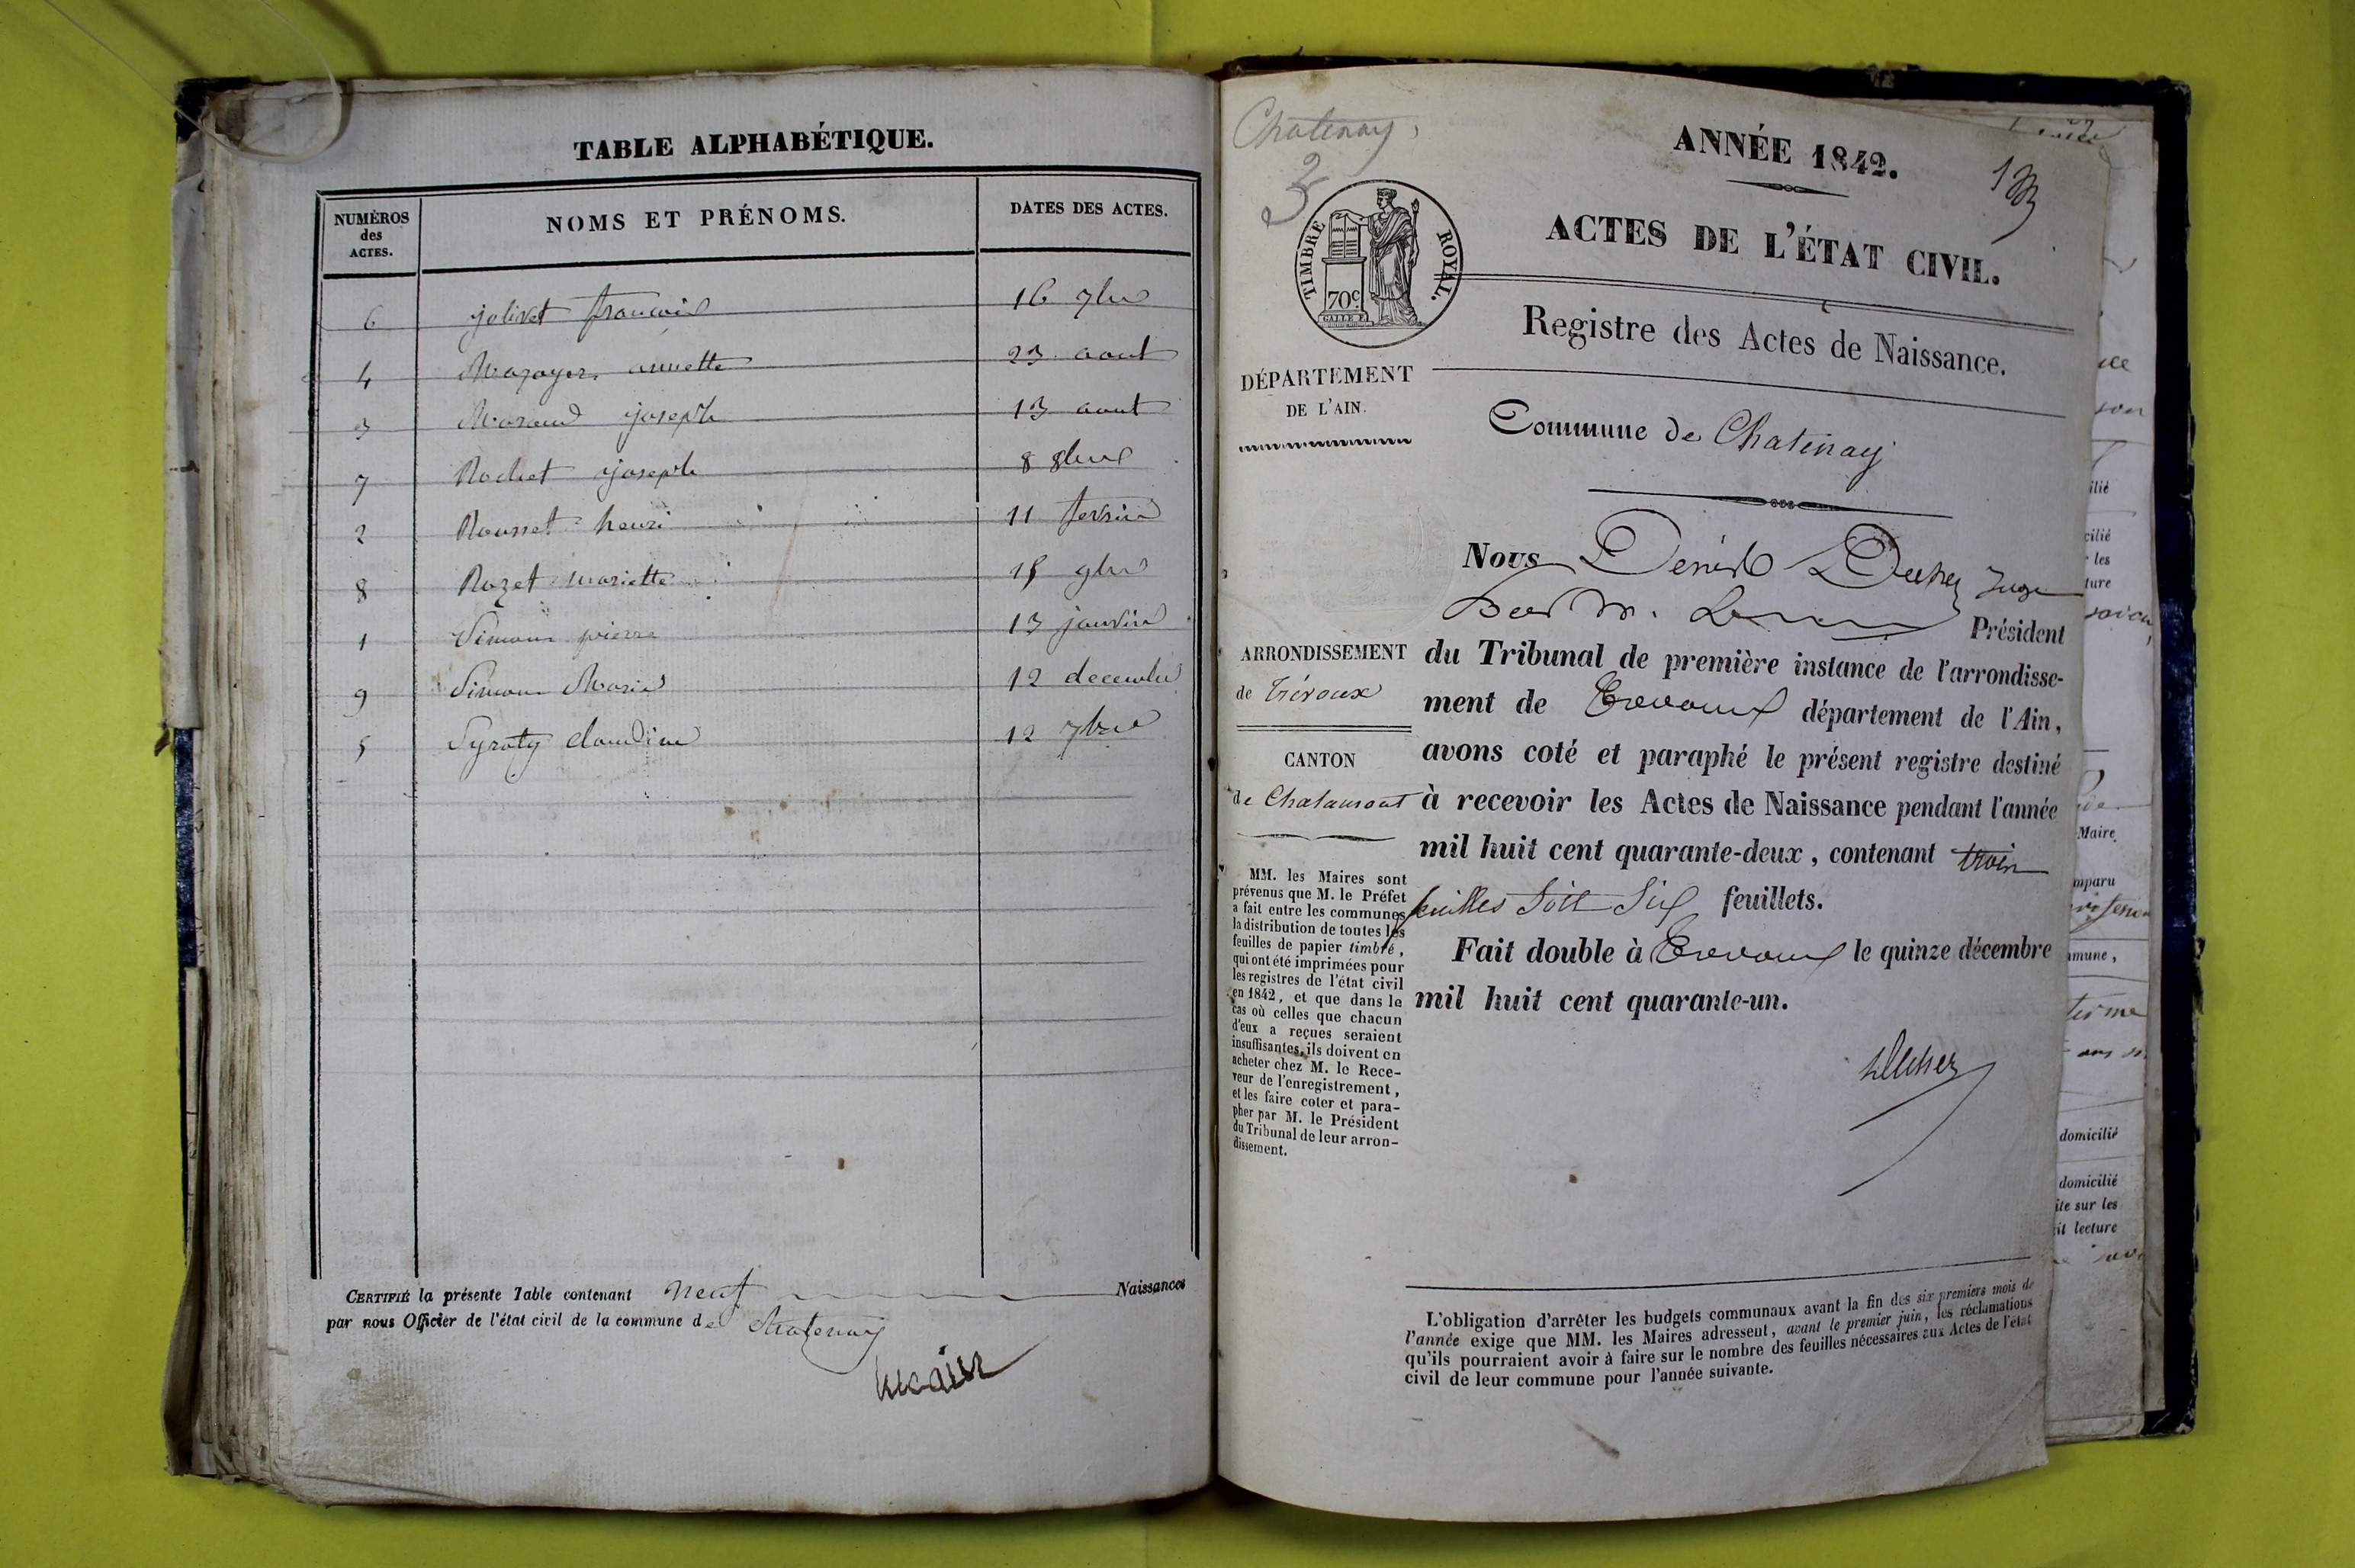 TABLE ALPHABÉTIQUE.
NUMÉROS des ACTES. NOMS ET PRÉNOMS. DATES DES ACTES.
6 jolivet francois 16 7bre
4 Mazoyer annette 23 aout
3 Moraud joseph 13 aout
7 Rochet joseph 8 8bre
2 Rousset henri 11 fevrier
8 Rozet mariette 15 9bre
1 Simon pierre 13 janvier
9 Simon Marie 12 decembre
5 Syraty claudine 12 7bre
CERTIFIÉ la présente Table contenant neuf Naissances
par nous Officier de l'état civil de la commune de Chatenay
Chatenay
3
ANNÉE 1842.
TIMBRE ROYAL.
70c.
ACTES DE L'ÉTAT CIVIL.
Registre des Actes de Naissance.
DÉPARTEMENT
DE L'AIN.
Commune de Chatenay
Nous Juge
Président
ARRONDISSEMENT
de Trévoux
CANTON
de Chalamont
du Tribunal de première instance de l'arrondisse-
ment de Trevoux département de l'Ain,
avons coté et paraphé le présent registre destiné
à recevoir les Actes de Naissance pendant l'année
mil huit cent quarante-deux, contenant trois
feuilles soit six feuillets.
Fait double à Trevoux le quinze décembre
mil huit cent quarante-un.
MM. les Maires sont
prévenus que M. le Préfet
a fait entre les communes
la distribution de toutes les
feuilles de papier timbré,
qui ont été imprimées pour
les registres de l'état civil
en 1842, et que dans le
cas où celles que chacun
d'eux a reçues seraient
insuffisantes, ils doivent en
acheter chez M. le Rece-
veur de l'enregistrement,
et les faire coter et para-
pher par M. le Président
du Tribunal de leur arron-
dissement.
L'obligation d'arrêter les budgets communaux avant la fin des six premiers mois de
l'année exige que MM. les Maires adressent, avant le premier juin, les réclamations
qu'ils pourraient avoir à faire sur le nombre des feuilles nécessaires aux Actes de l'état
civil de leur commune pour l'année suivante.
les
Maire
domicilié
domicilié